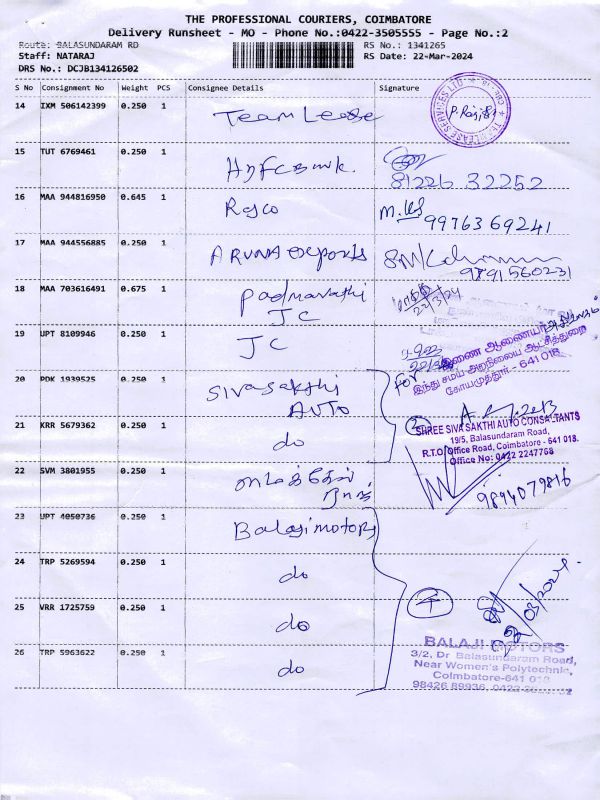 THE PROFESSIONAL COURIERS, COIMBATORE
Delivery Runsheet - MO - Phone No.:0422-3505555 - Page No.:2
Route: BALASUNDARAM RD RS No.: 1341265
Staff: NATARAJ RS Date: 22-Mar-2024
DRS No.: DCJB134126502
S No Consignment No Weight PCS Consignee Details Signature
14 IXM 506142399 0.250 1 TeamLease
15 TUT 6769461 0.250 1 Hdfc Bank.
81226 32252
16 MAA 944816950 0.645 1 Rajco
99763 69241
17 MAA 944556885 0.250 1 ARUNA exports
9791560231
18 MAA 703161491 0.675 1 Padmavathi
JC
22/3/24
19 UPT 8109946 0.250 1 JC
இணை ஆணையர்
இந்து சமய அறநிலைய ஆட்சித்துறை
கோயமுத்தூர் - 641 018
for
20 PDK 1939525 0.250 1 Sivasakthi
AUTO
21 KRR 5679362 0.250 1 do
2
SHREE SIVA SAKTHI AUTO CONSULTANTS
19/5, Balasundaram Road,
R.T.O. Office Road, Coimbatore - 641 018.
Office No: 0422 2247768
22 SVM 3801955 0.250 1
9894079816
23 UPT 4050736 0.250 1 Balaji motors
24 TRP 5269594 0.250 1 do
25 VRR 1725759 0.250 1 do
4
26 TRP 5963622 0.250 1 do
BALAJI MOTORS
3/2, Dr Balasundaram Road,
Near Women's Polytechnic,
Coimbatore-641 018
98426 89936, 0422